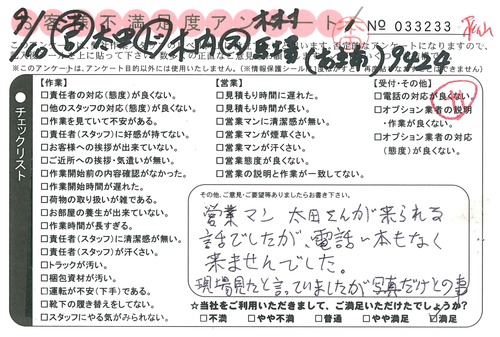 お客様不満足度アンケート
木村
No 033233
9/10
※このアンケートは、アンケート目的以外には使用いたしません。
9424
チェックリスト
【作業】
□責任者の対応(態度)が良くない。
□他のスタッフの対応(態度)が良くない。
□作業を見ていて不安がある。
□責任者(スタッフ)に好感が持てない。
□お客様への挨拶が出来ていない。
□ご近所への挨拶・気遣いが無い。
□作業開始前の内容確認がなかった。
□作業開始時間が遅れた。
□荷物の取り扱いが雑である。
□お部屋の養生が出来ていない。
□作業時間が長すぎる。
□責任者(スタッフ)に清潔感が無い。
□責任者(スタッフ)が汗くさい。
□トラックが汚い。
□梱包資材が汚い。
□運転が不安(下手)である。
□靴下の履き替えをしてない。
□スタッフにやる気がみられない。
【営業】
□見積もり時間に遅れた。
□見積もり時間が長い。
□営業マンに清潔感が無い。
□営業マンが煙草くさい。
□営業マンが汗くさい。
□営業態度が良くない。
□営業の説明と作業が一致してない。
【受付・その他】
□電話の対応が良くない。
□オプション業者の説明・作業が良くない。
□オプション業者の対応(態度)が良くない。
その他、ご意見・ご要望等ありましたらお書き下さい。
営業マン 太田さんが来られる
話でしたが、電話一本もなく
来ませんでした。
現場見たと言っていましたが写真だけとの事
☆当社をご利用いただきまして、ご満足いただけたでしょうか?
□不満 □やや不満 □普通 □やや満足 ☑満足